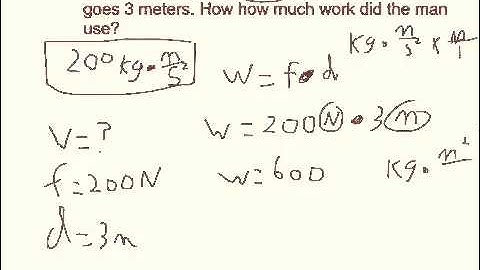 goes 3 meters. How how much work did the man
use?
200 kg · m/s²
kg · m/s² × m/1
w = f · d
V = ?
w = 200 N · 3 m
f = 200N
w = 600
kg · m²
d = 3m